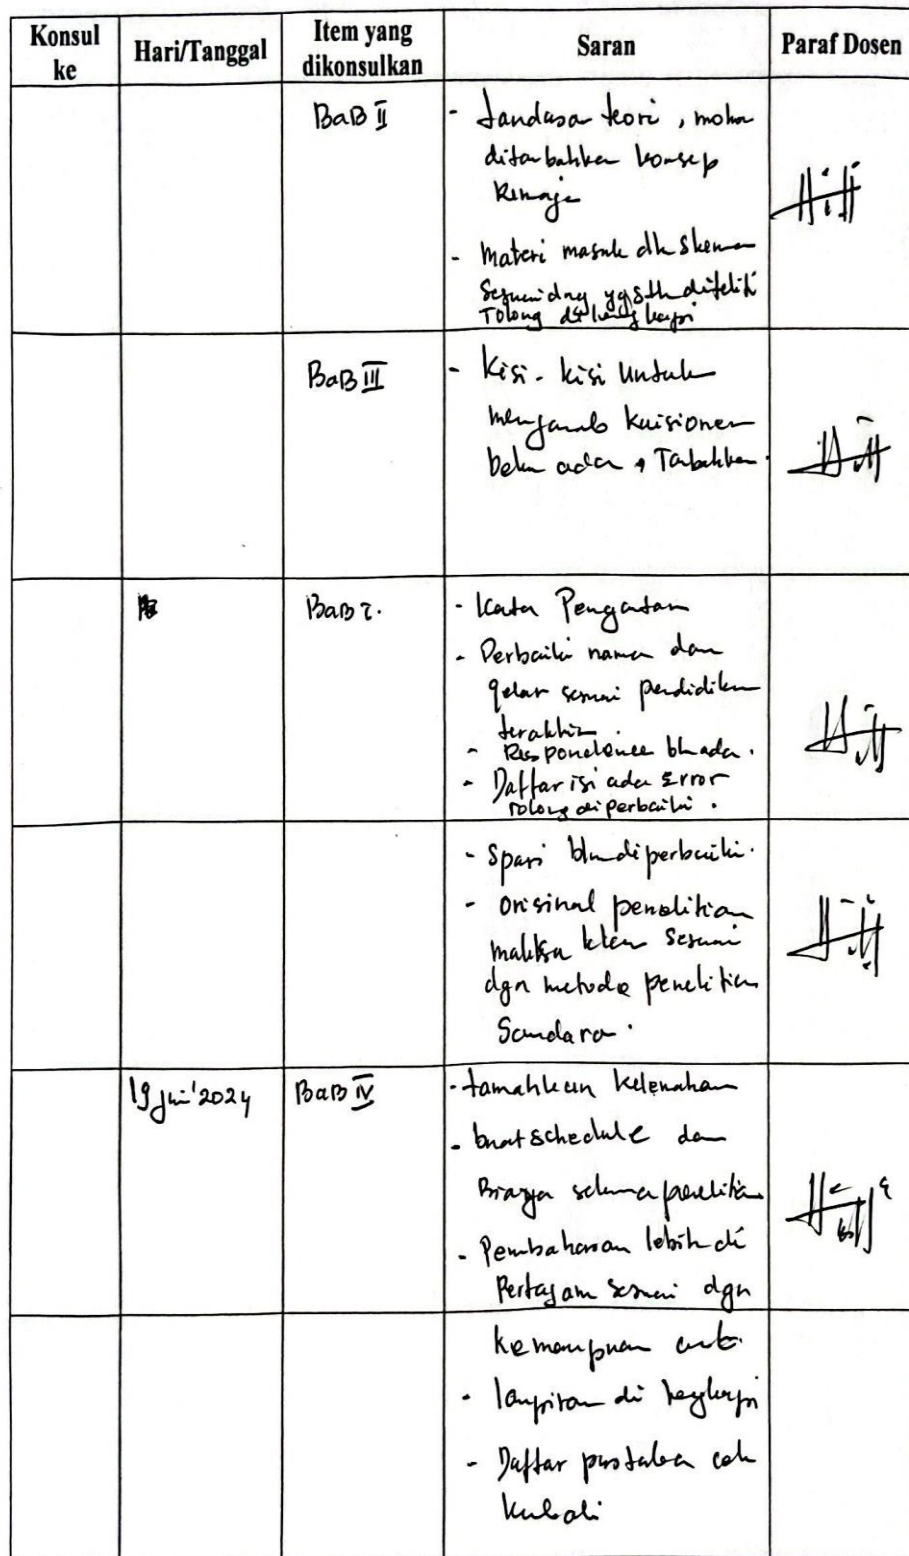 Konsul ke
Hari/Tanggal
Item yang dikonsulkan
Saran
Paraf Dosen
BaB II
- Landasan teori, mohon
ditambahkan konsep
Remaja
- Materi masuk dlm skema
Sesuai dng yg sdh diteliti
Tolong dilengkapi
BaB III
- Kisi-kisi Untuk
menjawab kuisioner
belum ada, Tambahkan.
BaB I.
- Kata Pengantar
- Perbaiki nama dan
gelar sesuai pendidikan
terakhir.
- Respondence blm ada.
- Daftar isi ada Error
tolong diperbaiki.
- Spasi blm diperbaiki.
- Orisinal penelitian
sesuai
dgn metode penelitian
Saudara.
19 Juni '2024
BaB IV
- tambahkan kelemahan
- buat schedule dan
Biaya selama penelitian
- Pembahasan lebih di
Pertajam sesuai dgn
kemampuan
- lampiran di lengkapi
- Daftar pustaka cek
kembali